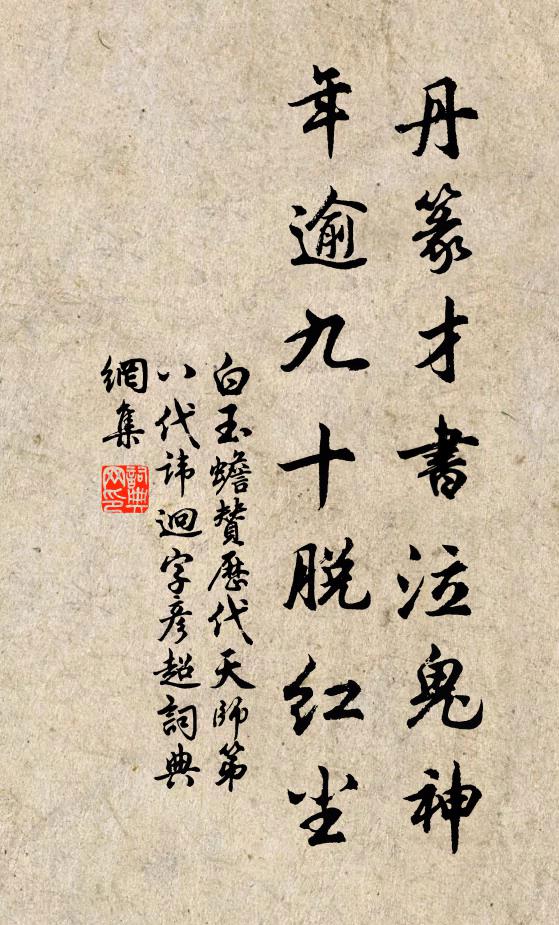 丹篆才書泣鬼神
年逾九十脱红尘
白玉蟾贊歷代天師第
八代諱迥字彥超詞典
網集
詞典網印